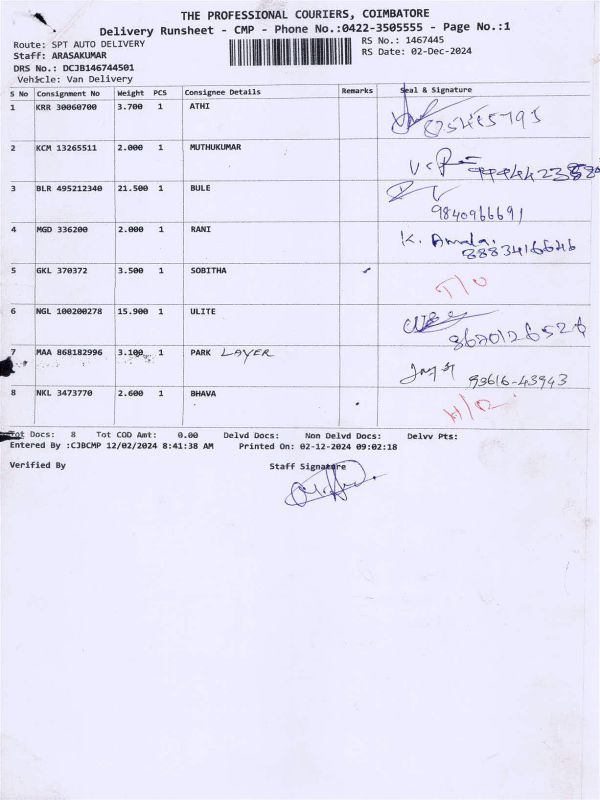 THE PROFESSIONAL COURIERS, COIMBATORE
Delivery Runsheet - CMP - Phone No.:0422-3505555 - Page No.:1
Route: SPT AUTO DELIVERY RS No.: 1467445
Staff: ARASAKUMAR RS Date: 02-Dec-2024
DRS No.: DCJB146744501
Vehicle: Van Delivery
S No Consignment No Weight PCS Consignee Details Remarks Seal & Signature
1 KRR 30060700 3.700 1 ATHI
2 KCM 13265511 2.000 1 MUTHUKUMAR
3 BLR 495212340 21.500 1 BULE
9840966691
4 MGD 336200 2.000 1 RANI K. Amala.
8883416646
5 GKL 370372 3.500 1 SOBITHA
6 NGL 100200278 15.900 1 ULITE
7 MAA 868182996 3.100 1 PARK LAYER
93616-43943
8 NKL 3473770 2.600 1 BHAVA
Tot Docs: 8 Tot COD Amt: 0.00 Delvd Docs: Non Delvd Docs: Delvv Pts:
Entered By :CJBCMP 12/02/2024 8:41:38 AM Printed On: 02-12-2024 09:02:18
Verified By Staff Signature